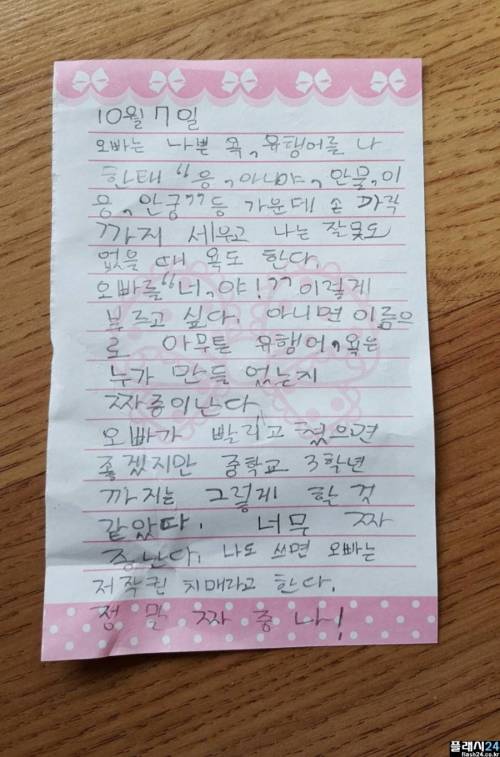 10월 7일
오빠는 나쁜 욕, 유행어를 나
한태 "응, 아니야, 안물, 이
응, 안궁" 등 가운데 손 까락
까지 세우고 나는 잘못도
없을 때 욕도 한다.
오빠를 "너, 야!" 이렇게
부르고 싶다. 아니면 이름으
로 아무튼 유행어, 욕은
누가 만들 었는지
짜증이난다
오빠가 빨리고 쳤으면
좋겠지만 중학교 3학년
까지는 그렇게 할 것
같았다. 너무 짜
증난다. 나도 쓰면 오빠는
저작권 치매라고 한다.
정말 짜 증 나!
플래시24
flash24.co.kr